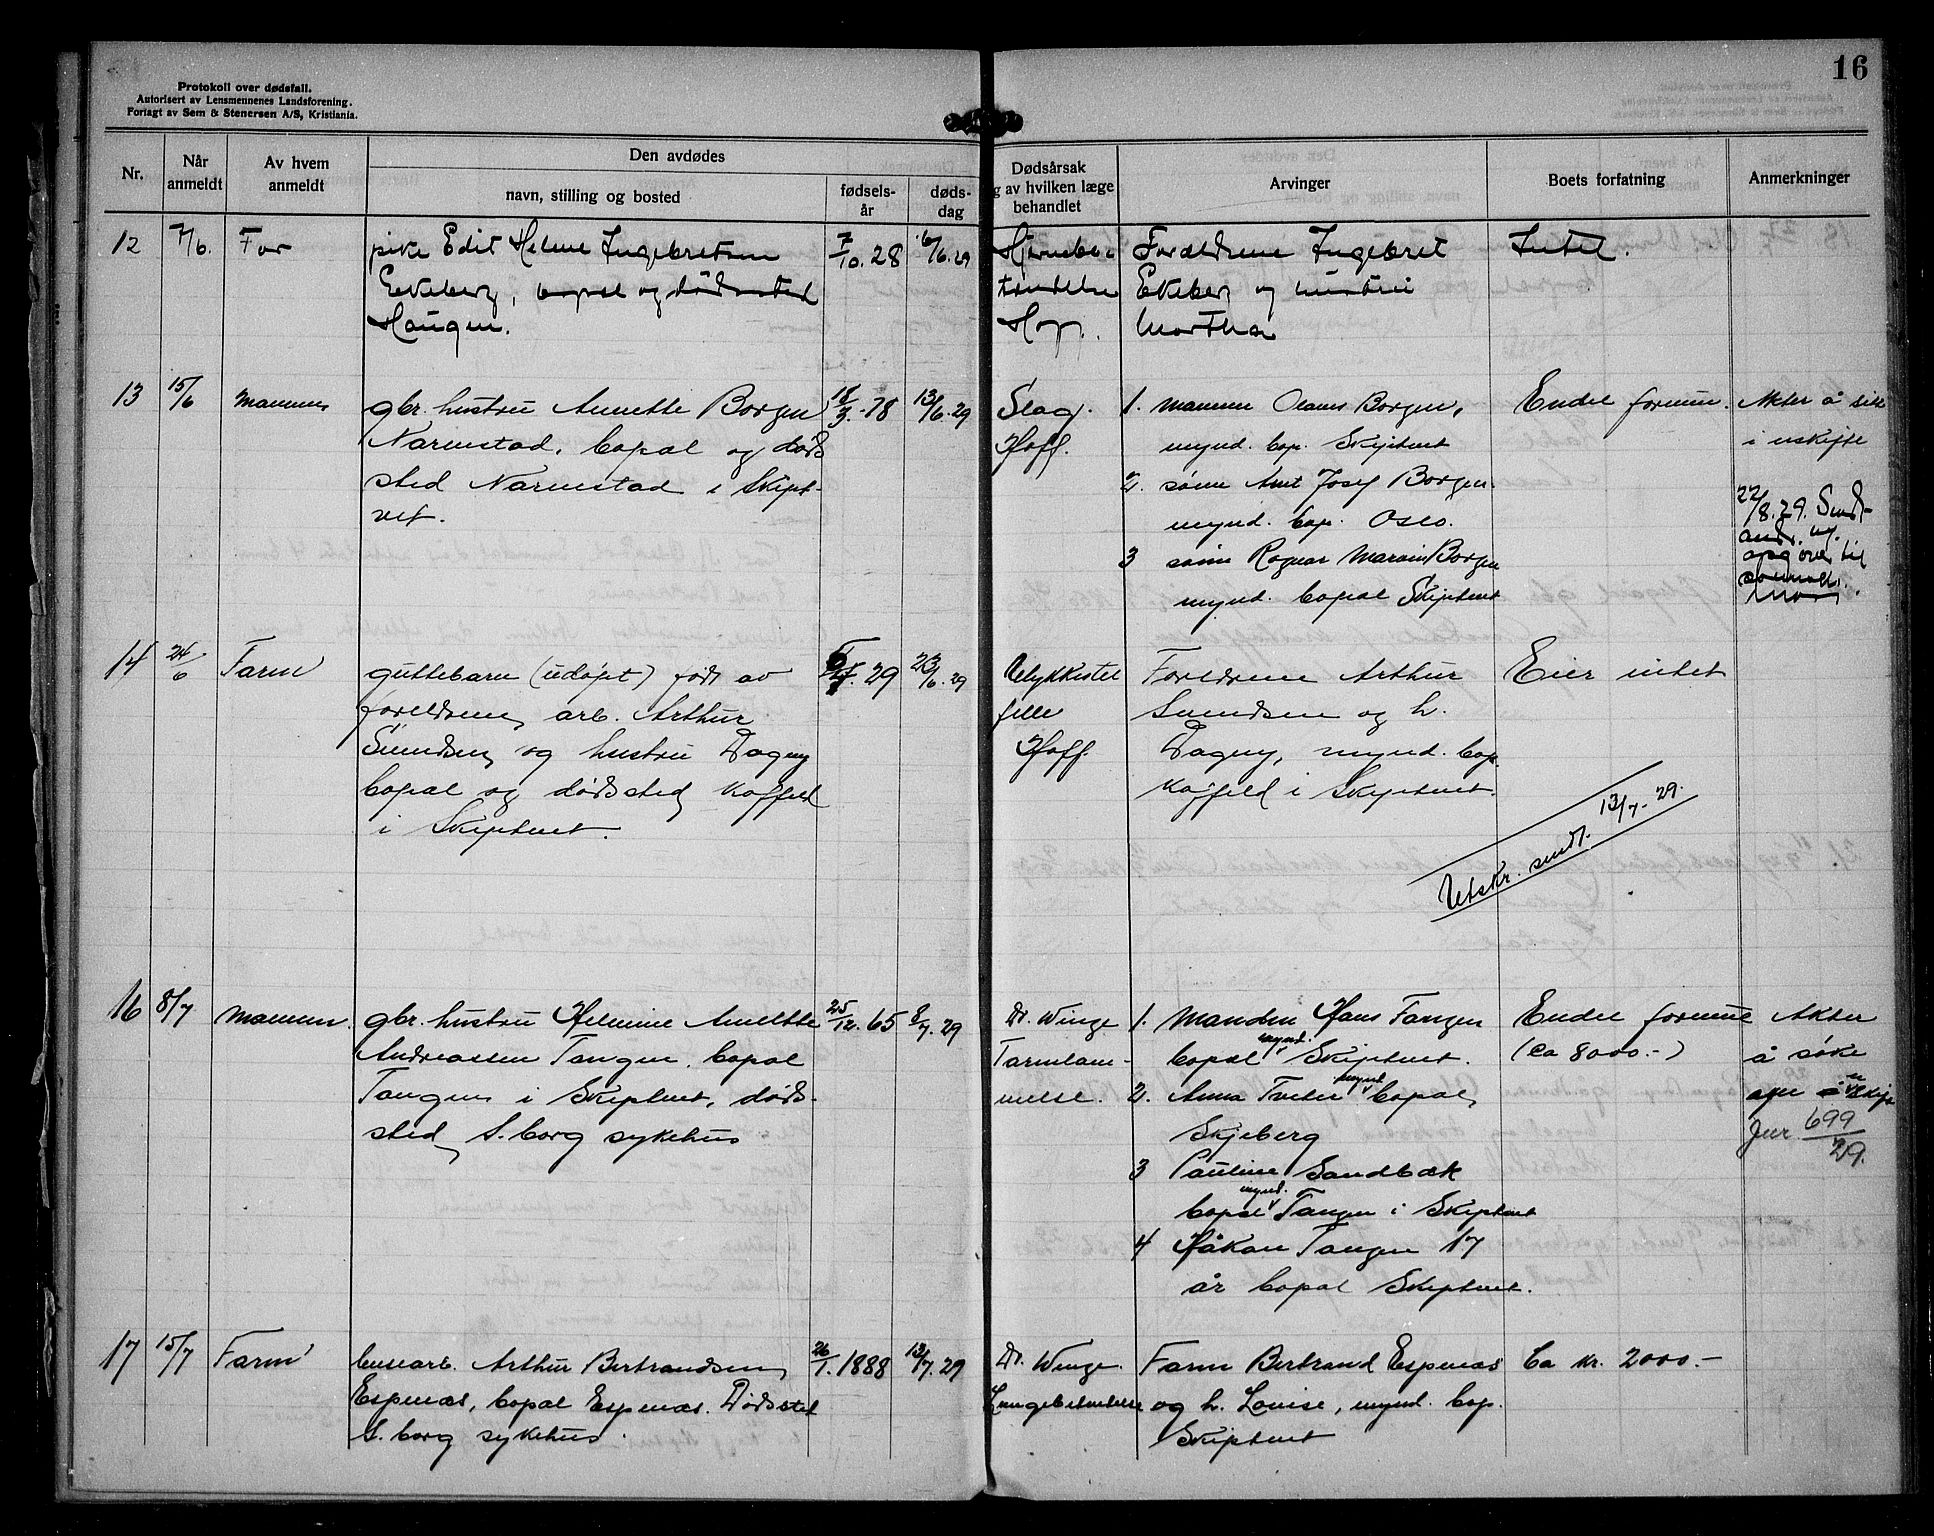 16
Protokoll over dødsfall.
Autorisert av Lensmennenes Landsforening.
Forlagt av Sem & Stenersen A/S, Kristiania.
Nr.
Når anmeldt
Av hvem anmeldt
Den avdødes
navn, stilling og bosted
fødsels-år
døds-dag
Dødsårsak
g av hvilken læge
behandlet
Arvinger
Boets forfatning
Anmerkninger
12 7/6. Far
pike Edit Helene Ingebretsen
Ekeberg, bopæl og dødssted
Haugen.
7/10. 28 6/6. 29
Hjernebe-
tendelse
Forældrene Ingebret
Ekeberg og hustru
Martha
Intet.
13 15/6 Mannen
gbr. hustru Annette Borgen
Narvestad, bopal og døds
sted Narvestad i Skipt-
vet.
18/3. 78 13/6. 29
Slag.
Hoff.
1. Mannen Olaves Borgen,
mynd. bop. Skiptvet
2. sønn Arnt Josef Borgen
mynd. bop. Oslo.
3 sønn Ragnar Marvin Borgen
mynd. bopal Skiptvet
Endel formue.
Akter å sitt
i uskifte
22/8. 29. Sendt
til
14 24/6 Farm
guttebarn (udøpt) født av
foreldrene, arb. Arthur
Svendsen og hustru Dagny
bopal og dødssted Kopfeld
i Skiptvet.
29 23/6. 29
Ulykkestil
felle
Hoff.
Foreldrene Arthur
Svendsen og h.
Dagny, mynd. bop.
i Skiptvet.
Eier intet
Utskr. sendt. 13/7- 29.
16 8/7 Mannen.
gbr. hustru Helmine Anette
Andreassen Tangen, bopal
Tangen i Skiptvet, døds-
sted S.borg sykehus
25/12. 65 2/7. 29
Dr. Winge
1. Manden Hans Tangen
bopal mynd. Skiptvet.
2. Anna Tveter mynd bopal
Skjeberg
3 Pauline Sandbæk
bopal mynd. Tangen i Skiptvet
4 Håkon Tangen 17
år bopal Skiptvet.
Endel formue
(ca 8000.-)
Akter
å søke
om uskifte
Jnr 699/29.
17 15/7 Farm
Arthur Bertrandsen
Espenæs, bopal Espenæs. Dødssted
S.borg sykehus.
26/1. 1888 13/7. 29
Dr. Winge.
Lungebetendelse
Farm Bertrand Espenæs
og h. Lovise, mynd. bop.
Skiptvet
Ca kr. 2000.-